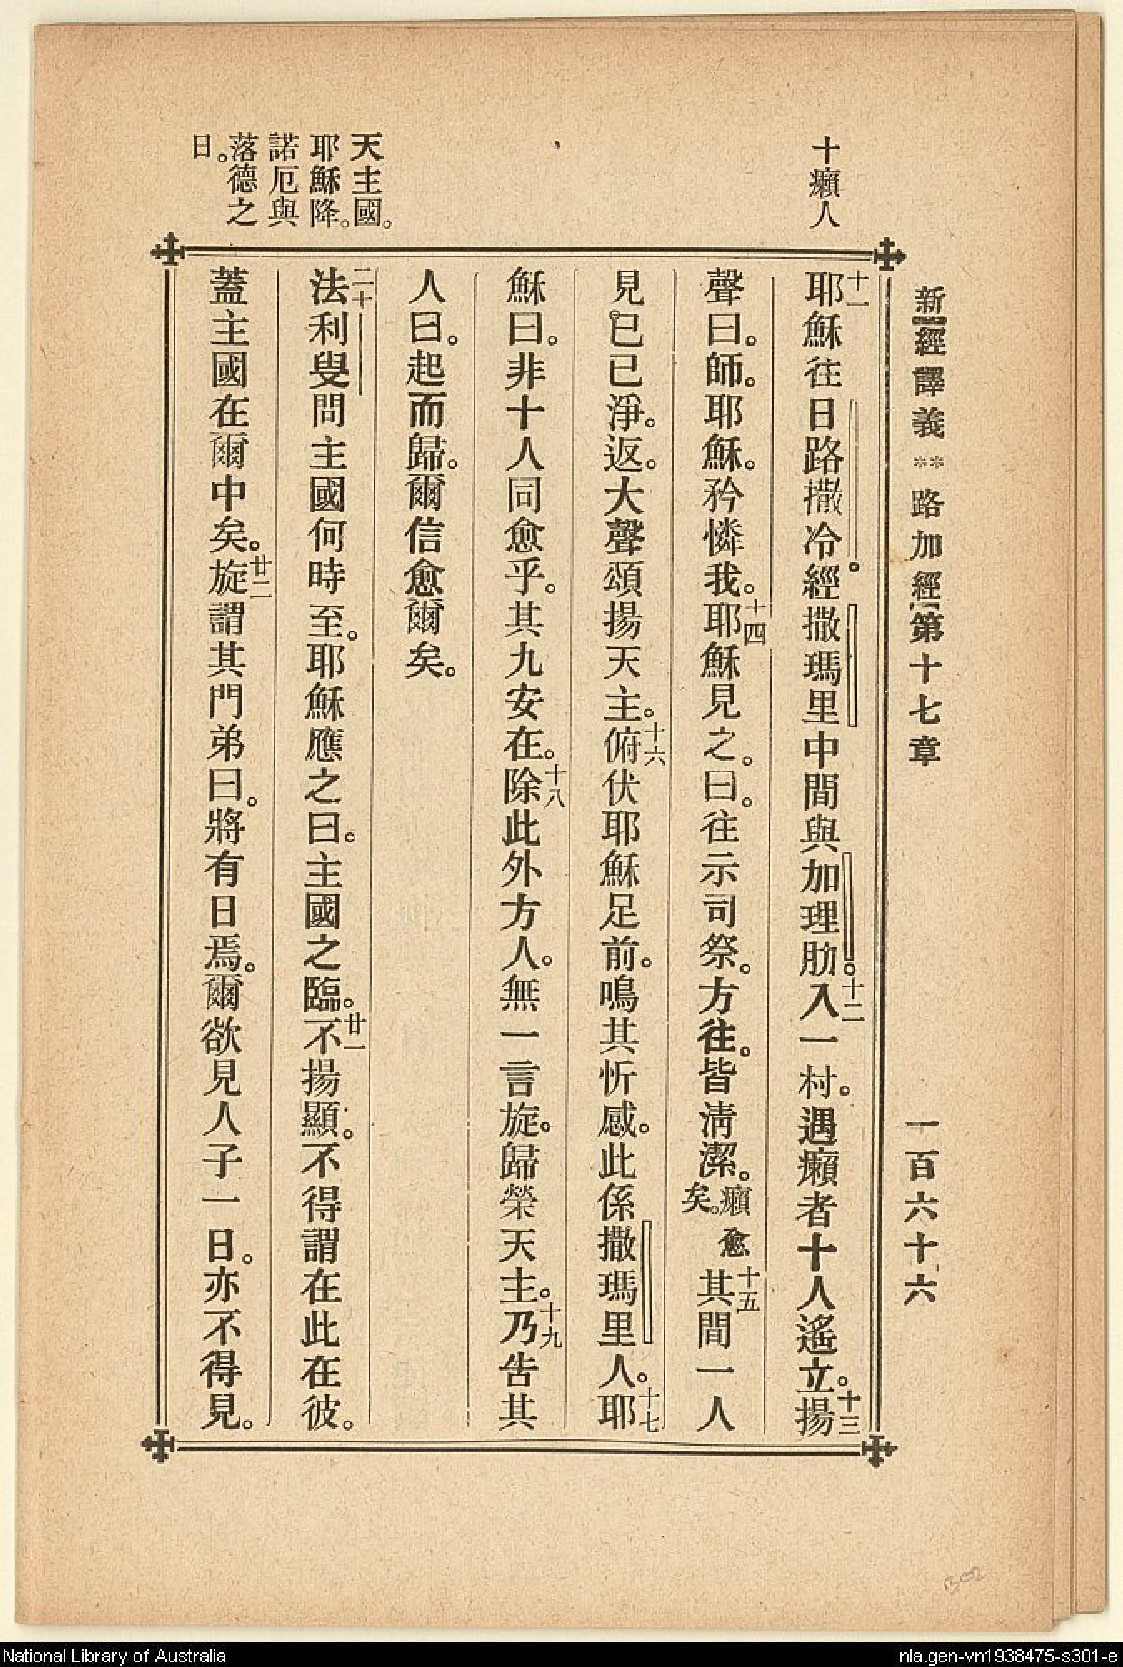 新經譯義**路加經第十七章 一百六十六
十癩人
十一耶穌往日路撒冷。經撒瑪里中間與加理肋。十二入一村。遇癩者十人遙立。十三揚
聲曰。師。耶穌。矜憐我。十四耶穌見之。曰。往示司祭。方往。皆清潔。癩愈矣。十五其間一人
見已已淨。返。大聲頌揚天主。十六俯伏耶穌足前。鳴其忻感。此係撒瑪里人。十七耶
穌曰。非十人同愈乎。其九安在。十八除此外方人。無一言旋。歸榮天主。十九乃告其
人曰。起而歸。爾信愈爾矣。
天主國。
耶穌降。
諾厄與
落德之
日。
二十法利叟問主國何時至。耶穌應之曰。主國之臨。廿一不揚顯。不得謂在此在彼。
蓋主國在爾中矣。廿二旋謂其門弟曰。將有日焉。爾欲見人子一日。亦不得見。
302
National Library of Australia
nla.gen-vn1938475-s301-e